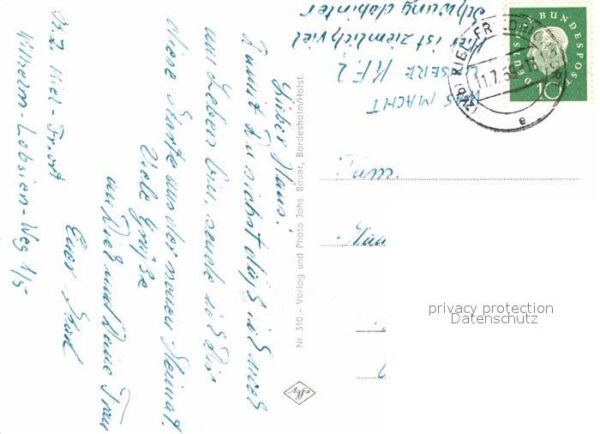 Lieber Klaus!
Damit Du siehst daß ich noch
am Leben bin, sende ich Dir
diese Karte aus der neuen Heimat.
Viele Grüße
an Dich und Deine Frau
Euer
Kiel-Fr.ort
Wilhelm-Lobsien-Weg 1/5
WAS MACHT
UNSERE KF2
hier ist ziemlich viel
Schwung dahinter
Nr. 310 - Verlag und Photo Johs. Bauer, Bordesholm/Holst.
KIEL-FR
e
DEUTSCHE BUNDESPOST
10
privacy protection
Datenschutz